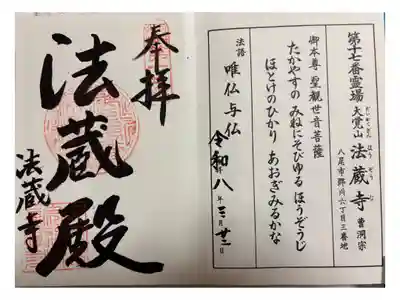 第十七番霊場
大覚山 法蔵寺 曹洞宗
だいかくざん ほうぞうじ
八尾市郡川六丁目三番地
御本尊 聖観世音菩薩
たかやすの みねにそびゆる ほうぞうじ
ほとけのひかり あおぎみるかな
法語 唯仏与仏
令和八年三月廿二日
奉拝
法蔵殿
法蔵寺